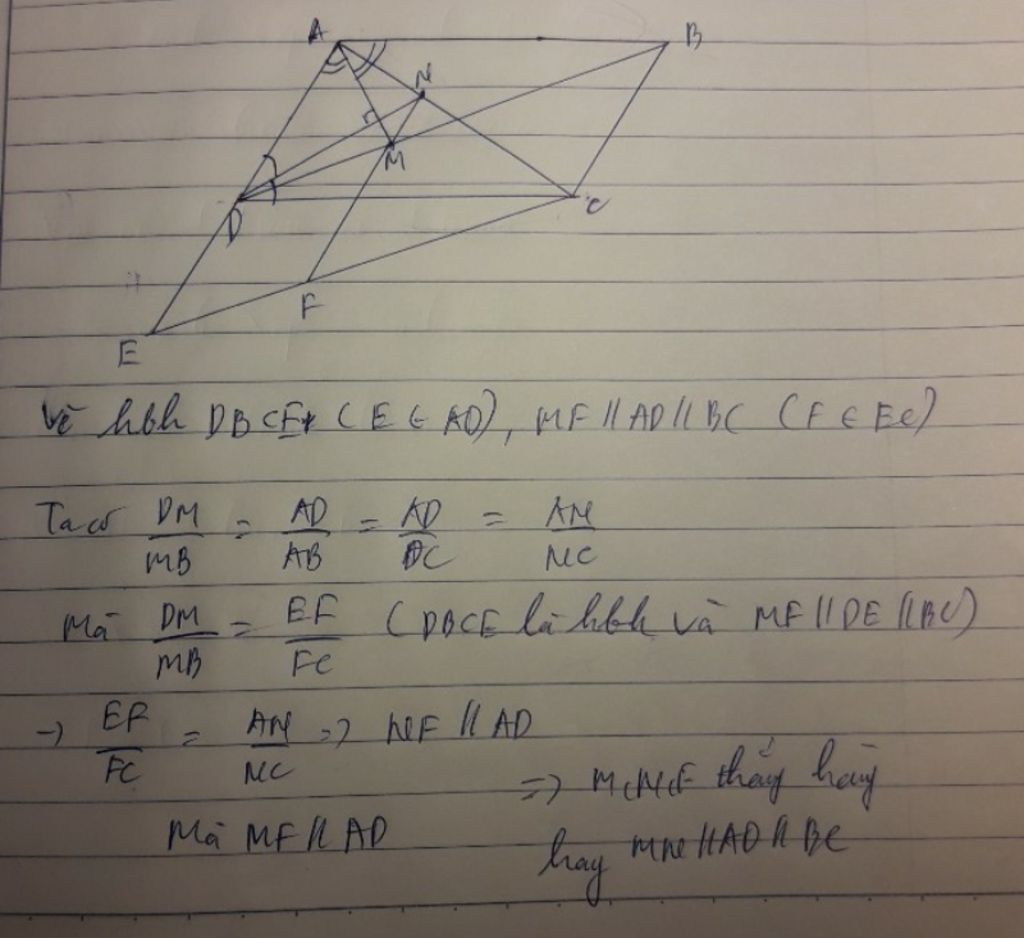 A
B
N
M
D
C
F
E
Vẽ hbh DBCE (E ∈ AD), MF // AD // BC (F ∈ EC)
Ta có DM/MB = AD/AB = AD/DC = AN/NC
Mà DM/MB = EF/FC (DBCE là hbh và MF // DE // BC)
→ EF/FC = AN/NC => NF // AD
Mà MF // AD
=> M, N, F thẳng hàng
hay MN // AD // BC